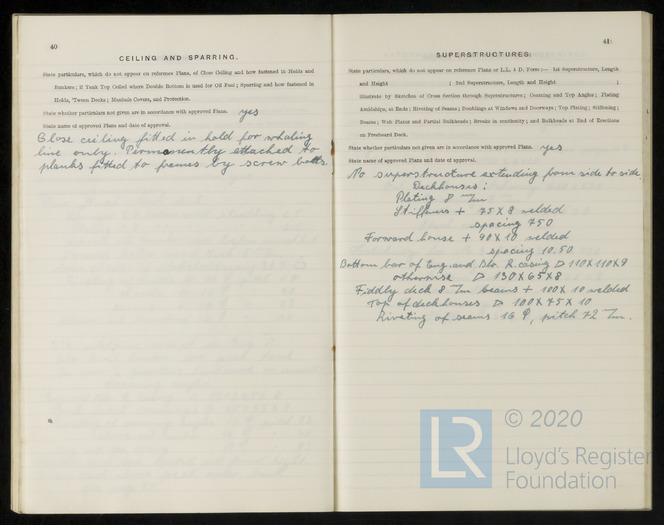 40
CEILING AND SPARRING.
State particulars, which do not appear on reference Plans, of Close Ceiling and how fastened in Holds and
Bunkers; if Tank Top Ceiled where Double Bottom is used for Oil Fuel; Sparring and how fastened in
Holds, 'Tween Decks; Manhole Covers, and Protection.
State whether particulars not given are in accordance with approved Plans. yes
State name of approved Plans and date of approval.
Close ceiling fitted in hold for whaling
line only. Permanently attached to
planks fitted to frames by screw bolts
41
SUPERSTRUCTURES:
State particulars, which do not appear on reference Plans or L.L. & D. Form:— 1st Superstructure, Length
and Height ; 2nd Superstructure, Length and Height ;
illustrate by Sketches of Cross Section through Superstructures; Coaming and Top Angles; Plating
Amidships, at Ends; Riveting of Beams; Doublings at Windows and Doorways; Top Plating; Stiffening;
Beams; Web Plates and Partial Bulkheads; Breaks in continuity; and Bulkheads at End of Erections
on Freeboard Deck.
State whether particulars not given are in accordance with approved Plans. yes
State name of approved Plans and date of approval.
No superstructure extending from side to side.
Deckhouses:
Plating 8 m/m
Stiffeners + 75 X 8 welded
spacing 750
Forward house + 90 X 10 welded
spacing 10.50
Bottom bar of Eng. and Blr. R. casing 110 X 110 X 9
otherwise 130 X 65 X 8
Fiddly deck 8 m/m beams + 100 X 10 welded
Top of deckhouses 100 X 75 X 10
Riveting of seams 16 φ, pitch 72 m/m.
LR
© 2020
Lloyd's Register
Foundation